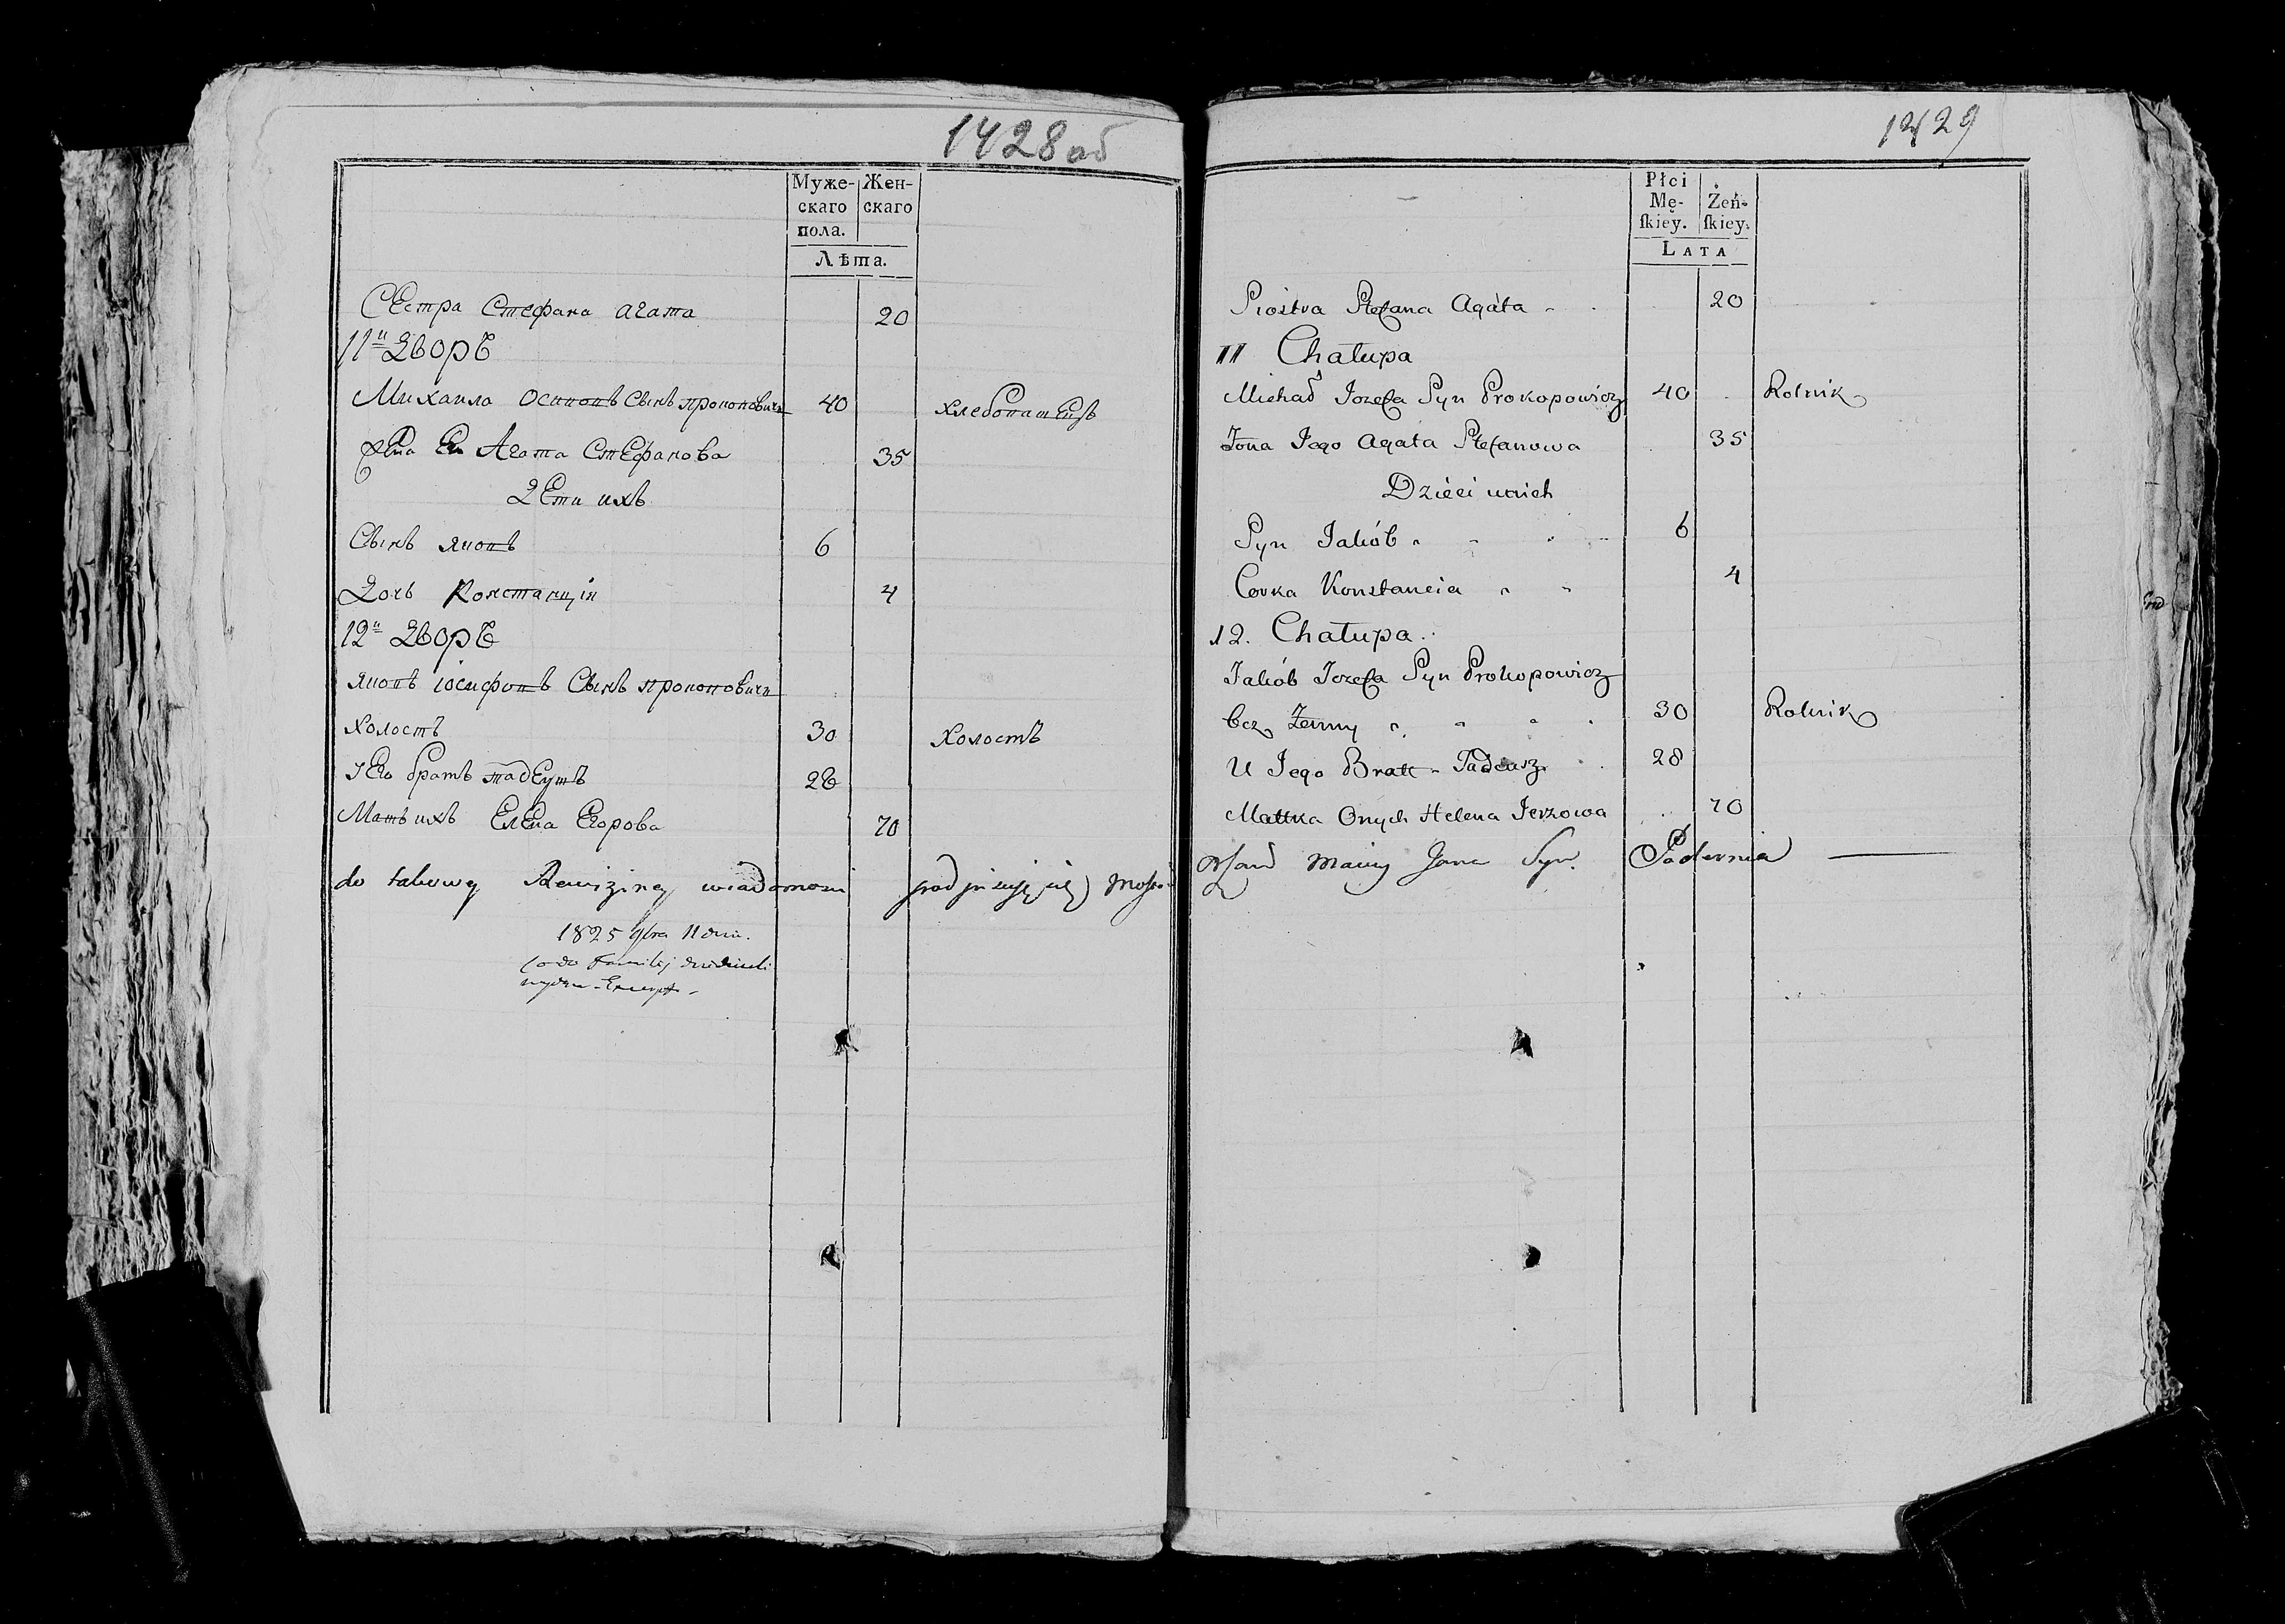 1428 об
Муже- Жен-
скаго скаго
пола.
Лѣта.
Сестра Стефана Агата 20
11й Дворъ
Михаила Осиповъ Сынъ Прокоповичъ 40 Хлебопашецъ
Жена Ею Агата Стефанова 35
Дети ихъ
Сынъ Якопъ 6
Дочь Констанція 4
12й Дворъ
Якопъ Іосифовъ Сынъ Прокоповичъ
Холостъ 30 Холостъ
І Его братъ Тадеушъ 28
Мать ихъ Елена Егорова 70
do takowey Rewizyiney wiadomosci podpisuję się
1825 9bra 11 dnia.
1429
Płci
Mę- Żeń-
skiey. skiey.
LATA
Siostra Stefana Agata 20
11 Chałupa
Michał Jozefa Syn Prokopowicz 40 Rolnik
Żona Jego Agata Stefanowa 35
Dzieci u nich
Syn Jakób 6
Corka Konstancia 4
12. Chałupa
Jakób Jozefa Syn Prokopowicz
bez Żenny 30 Rolnik
U Jego Bratt Tadeusz 28
Mattka Onych Helena Jerzowa 70
Jana Syn